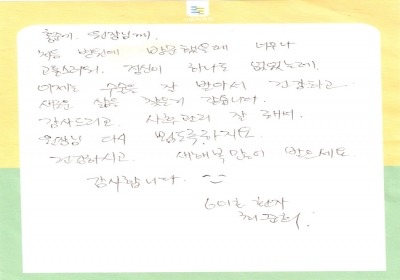 원장님께.
처음 병원에 방문했을때 너무나
고통스러워 정신이 하나도 없었는데
이제는 수술을 잘 받아서 건강하고
새로운 삶을 찾은거 같습니다.
감사드리고 사후관리 잘 해서
원장님 다시 안도록하지요
건강하시고. 새해복많이 받으세요
감사합니다.
601호 환자